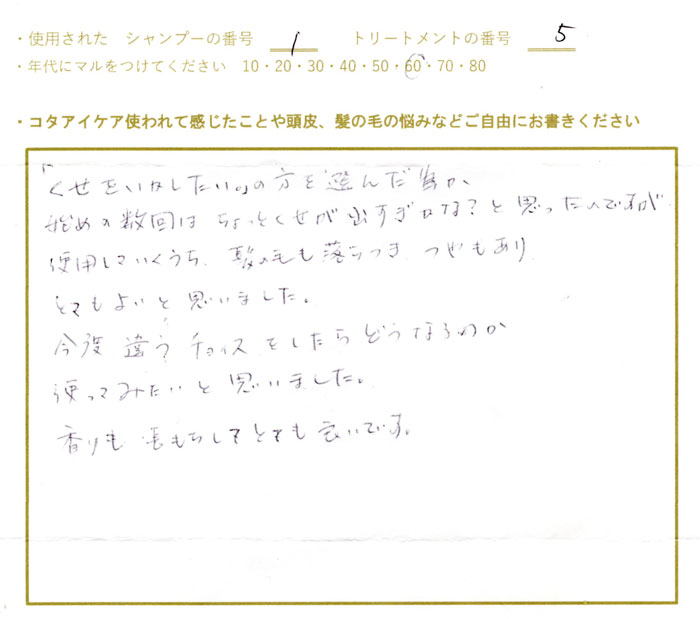 ・使用された シャンプーの番号 1 トリートメントの番号 5
・年代にマルをつけてください 10・20・30・40・50・60・70・80
・コタアイケア使われて感じたことや頭皮、髪の毛の悩みなどご自由にお書きください
「くせをいかしたい」の方を選んだ為か、
始めの数回は ちょっとくせが出すぎかな?と思ったのですが
使用していくうち、髪の毛も落ちつき つやもあり
とてもよいと思いました。
今度 違う チョイスをしたらどうなるのか
使ってみたいと思いました。
香りも 長もちしてとても良いです。